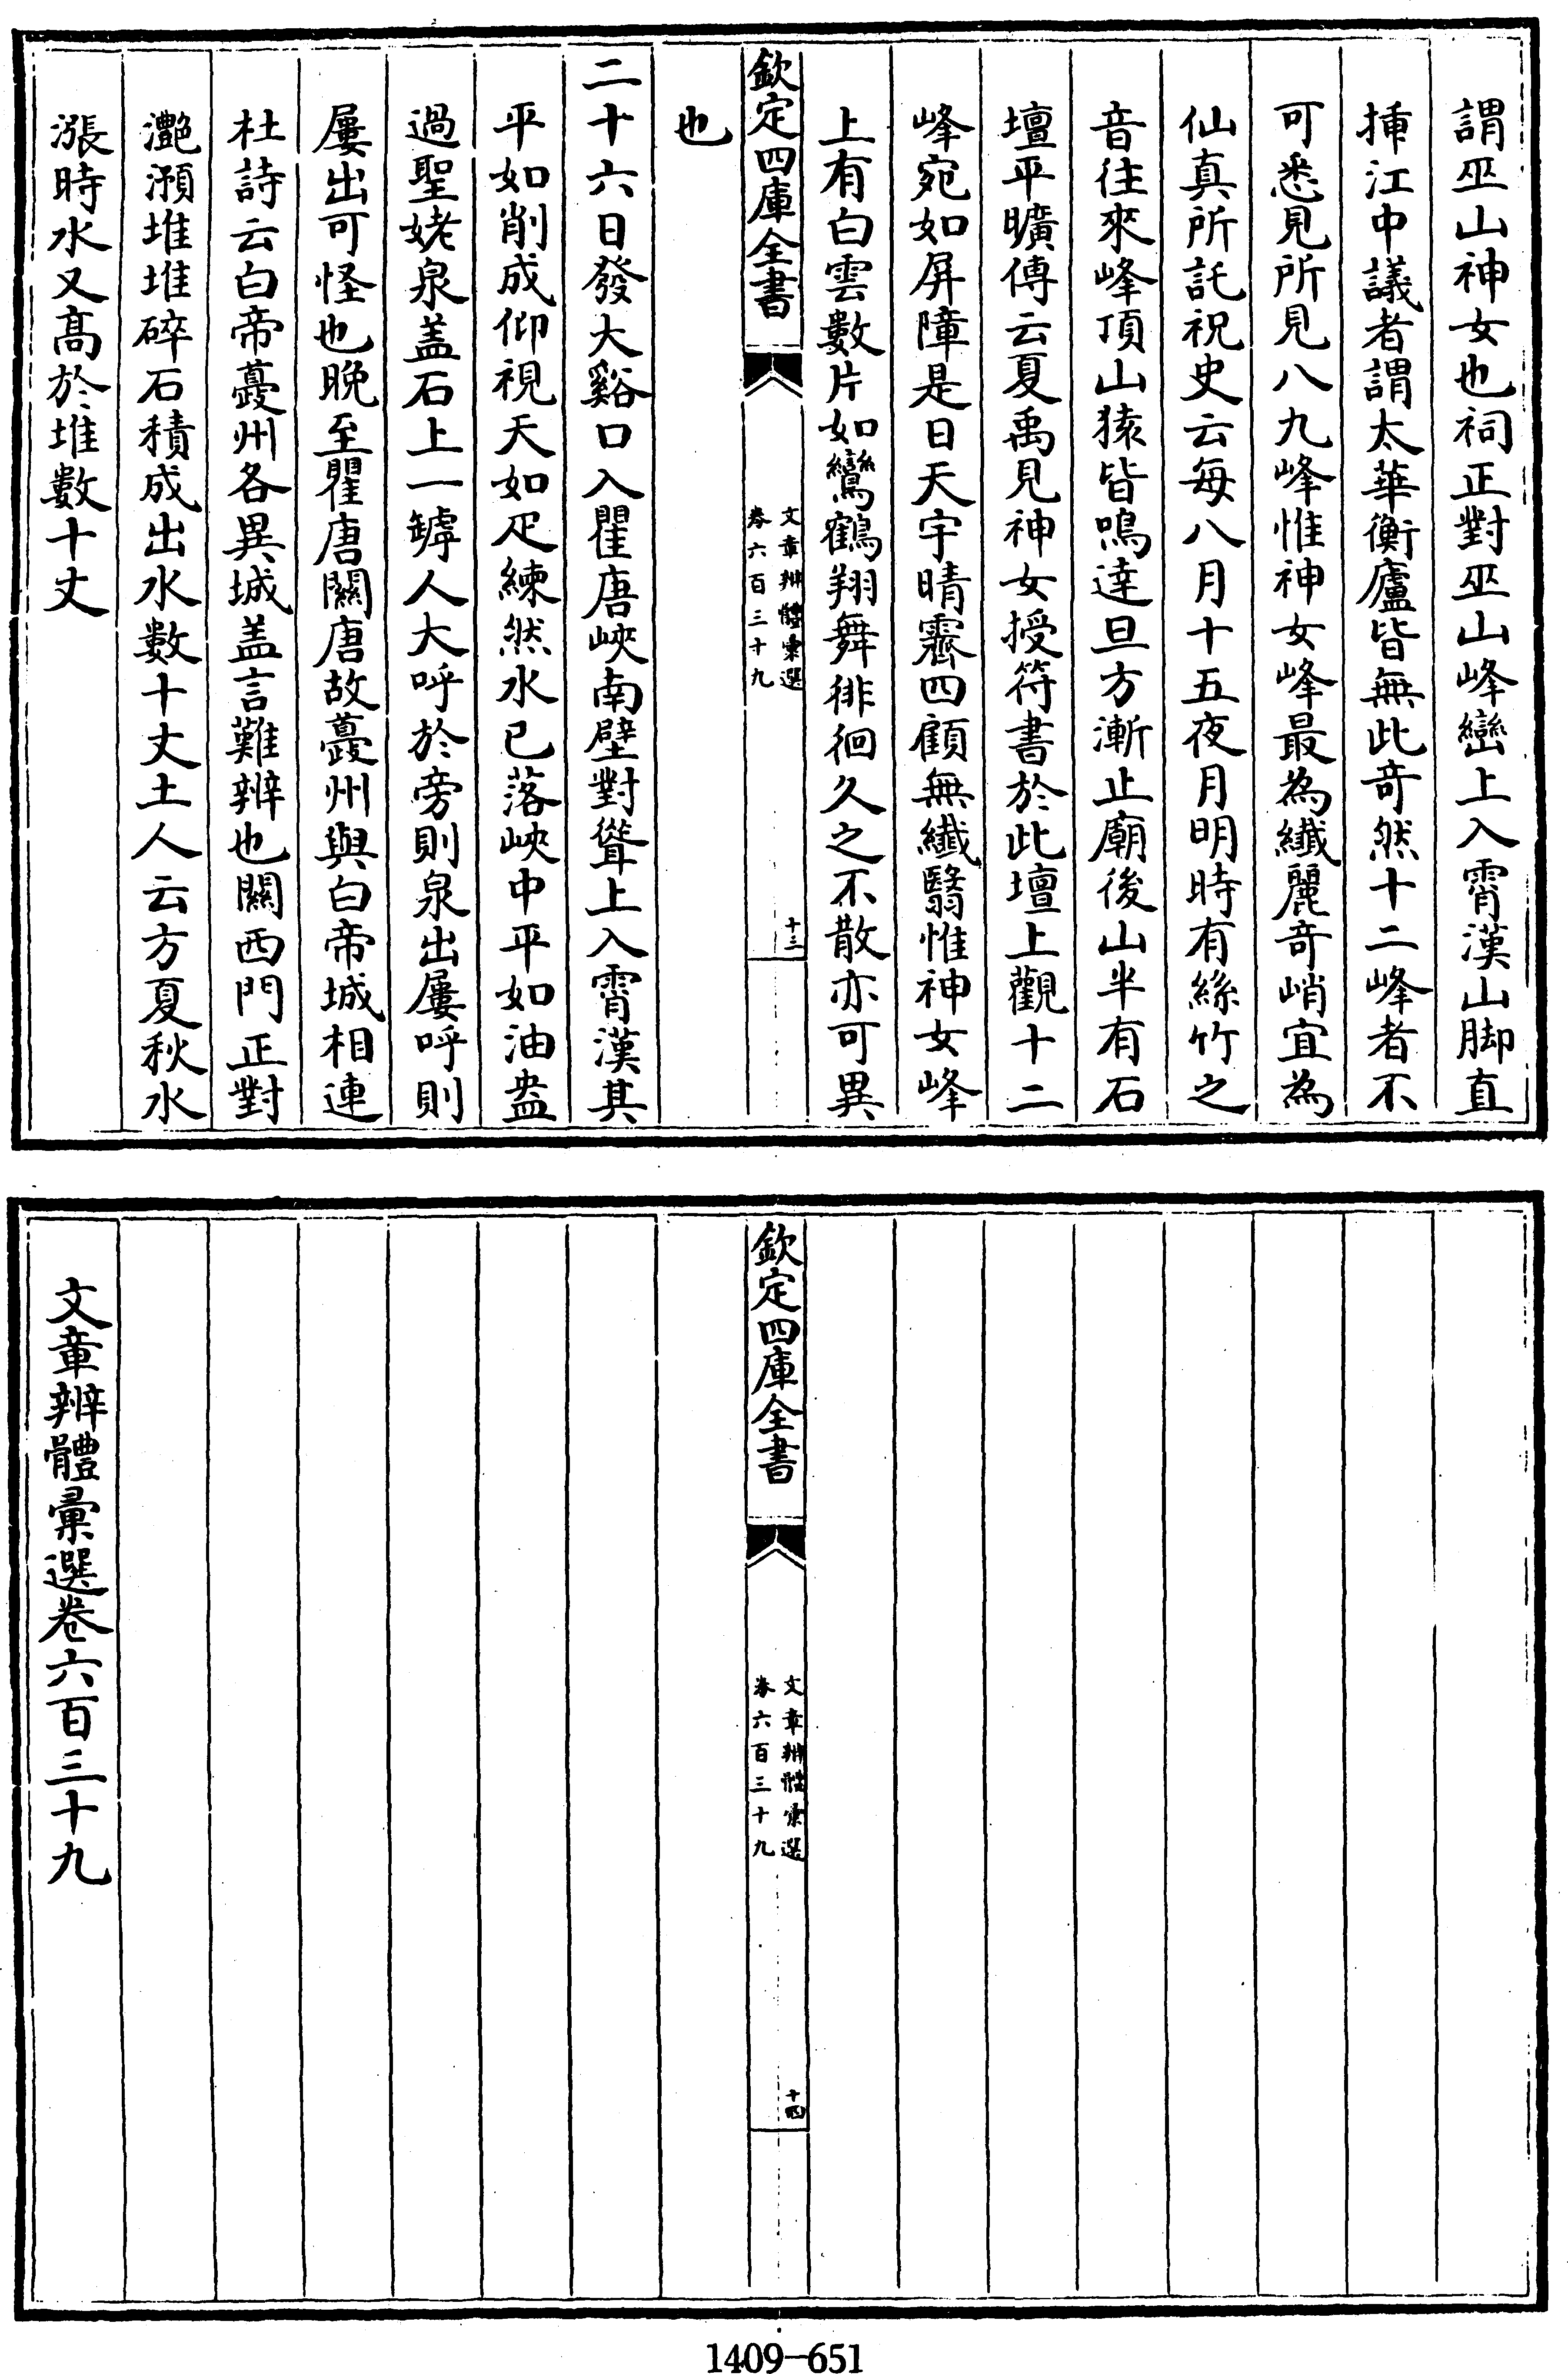 謂巫山神女也祠正對巫山峰巒上入霄漢山脚直
挿江中議者謂太華衡廬皆無此竒然十二峰者不
可悉見所見八九峰惟神女峰最為纎麗竒峭宜為
仙真所託祝史云每八月十五夜月明時有絲竹之
音往來峰頂山猿皆鳴達旦方漸止廟後山半有石
壇平曠傳云夏禹見神女授符書於此壇上觀十二
峰宛如屏障是日天宇晴霽四顧無纎翳惟神女峰
上有白雲數片如鸞鶴翔舞徘徊久之不散亦可異
欽定四庫全書
文章辨體彙選
卷六百三十九
十三
也
二十六日發大谿口入瞿唐峽南壁對聳上入霄漢其
平如削成仰視天如疋練然水已落峽中平如油盎
過聖姥泉盖石上一罅人大呼於旁則泉出屢呼則
屢出可怪也晚至瞿唐關唐故䕫州與白帝城相連
杜詩云白帝䕫州各異城盖言難辨也關西門正對
灔澦堆堆碎石積成出水數十丈土人云方夏秋水
漲時水又髙於堆數十丈
欽定四庫全書
文章辨體彙選
卷六百三十九
十四
文章辨體彙選卷六百三十九
1409-651